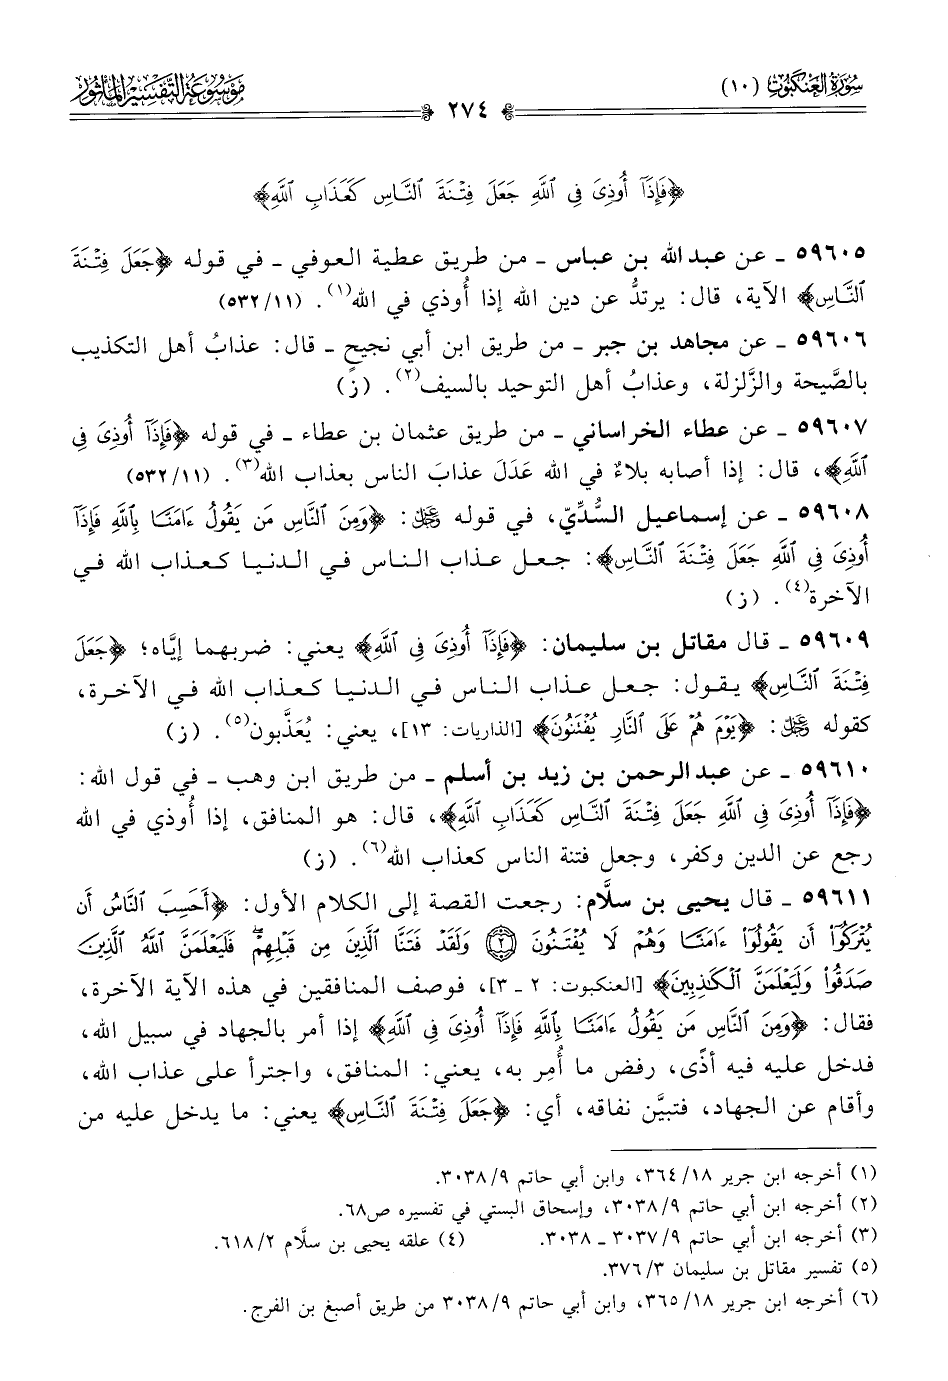 سورة العنكبوت (١٠)
٢٧٤
موسوعة التفسير المأثور
﴿فَإِذَآ أُوذِىَ فِى ٱللَّهِ جَعَلَ فِتْنَةَ ٱلنَّاسِ كَعَذَابِ ٱللَّهِ﴾
٥٩٦٠٥ ـ عن عبد الله بن عباس ـ من طريق عطية العوفي ـ في قوله ﴿جَعَلَ فِتْنَةَ
ٱلنَّاسِ﴾ الآية، قال: يرتدُّ عن دين الله إذا أُوذي في الله(١). (٥٣٢/١١)
٥٩٦٠٦ ـ عن مجاهد بن جبر ـ من طريق ابن أبي نجيح ـ قال: عذابُ أهل التكذيب
بالصَّيحة والزَّلزلة، وعذابُ أهل التوحيد بالسيف(٢). (ز)
٥٩٦٠٧ ـ عن عطاء الخراساني ـ من طريق عثمان بن عطاء ـ في قوله ﴿فَإِذَآ أُوذِىَ فِى
ٱللَّهِ﴾، قال: إذا أصابه بلاءٌ في الله عَدَلَ عذابَ الناس بعذاب الله(٣). (٥٣٢/١١)
٥٩٦٠٨ ـ عن إسماعيل السُّدِّيّ، في قوله ﷿: ﴿وَمِنَ ٱلنَّاسِ مَن يَقُولُ ءَامَنَّا بِٱللَّهِ فَإِذَآ
أُوذِىَ فِى ٱللَّهِ جَعَلَ فِتْنَةَ ٱلنَّاسِ﴾: جعل عذاب الناس في الدنيا كعذاب الله في
الآخرة(٤). (ز)
٥٩٦٠٩ ـ قال مقاتل بن سليمان: ﴿فَإِذَآ أُوذِىَ فِى ٱللَّهِ﴾ يعني: ضربهما إيَّاه؛ ﴿جَعَلَ
فِتْنَةَ ٱلنَّاسِ﴾ يقول: جعل عذاب الناس في الدنيا كعذاب الله في الآخرة،
كقوله ﷿: ﴿يَوْمَ هُمْ عَلَى ٱلنَّارِ يُفْتَنُونَ﴾ [الذاريات: ١٣]، يعني: يُعَذَّبون(٥). (ز)
٥٩٦١٠ ـ عن عبد الرحمن بن زيد بن أسلم ـ من طريق ابن وهب ـ في قول الله:
﴿فَإِذَآ أُوذِىَ فِى ٱللَّهِ جَعَلَ فِتْنَةَ ٱلنَّاسِ كَعَذَابِ ٱللَّهِ﴾، قال: هو المنافق، إذا أُوذي في الله
رجع عن الدين وكفر، وجعل فتنة الناس كعذاب الله(٦). (ز)
٥٩٦١١ ـ قال يحيى بن سلَّام: رجعت القصة إلى الكلام الأول: ﴿أَحَسِبَ ٱلنَّاسُ أَن
يُتْرَكُوٓا۟ أَن يَقُولُوٓا۟ ءَامَنَّا وَهُمْ لَا يُفْتَنُونَ ۝٢ وَلَقَدْ فَتَنَّا ٱلَّذِينَ مِن قَبْلِهِمْ ۖ فَلَيَعْلَمَنَّ ٱللَّهُ ٱلَّذِينَ
صَدَقُوا۟ وَلَيَعْلَمَنَّ ٱلْكَـٰذِبِينَ﴾ [العنكبوت: ٢ ـ ٣]، فوصف المنافقين في هذه الآية الآخرة،
فقال: ﴿وَمِنَ ٱلنَّاسِ مَن يَقُولُ ءَامَنَّا بِٱللَّهِ فَإِذَآ أُوذِىَ فِى ٱللَّهِ﴾ إذا أمر بالجهاد في سبيل الله،
فدخل عليه فيه أذًى، رفض ما أُمِر به، يعني: المنافق، واجترأ على عذاب الله،
وأقام عن الجهاد، فتبيَّن نفاقه، أي: ﴿جَعَلَ فِتْنَةَ ٱلنَّاسِ﴾ يعني: ما يدخل عليه من
(١) أخرجه ابن جرير ٣٦٤/١٨، وابن أبي حاتم ٣٠٣٨/٩.
(٢) أخرجه ابن أبي حاتم ٣٠٣٨/٩، وإسحاق البستي في تفسيره ص٦٨.
(٣) أخرجه ابن أبي حاتم ٣٠٣٧/٩ ـ ٣٠٣٨. (٤) علقه يحيى بن سلَّام ٦١٨/٢.
(٥) تفسير مقاتل بن سليمان ٣٧٦/٣.
(٦) أخرجه ابن جرير ٣٦٥/١٨، وابن أبي حاتم ٣٠٣٨/٩ من طريق أصبغ بن الفرج.